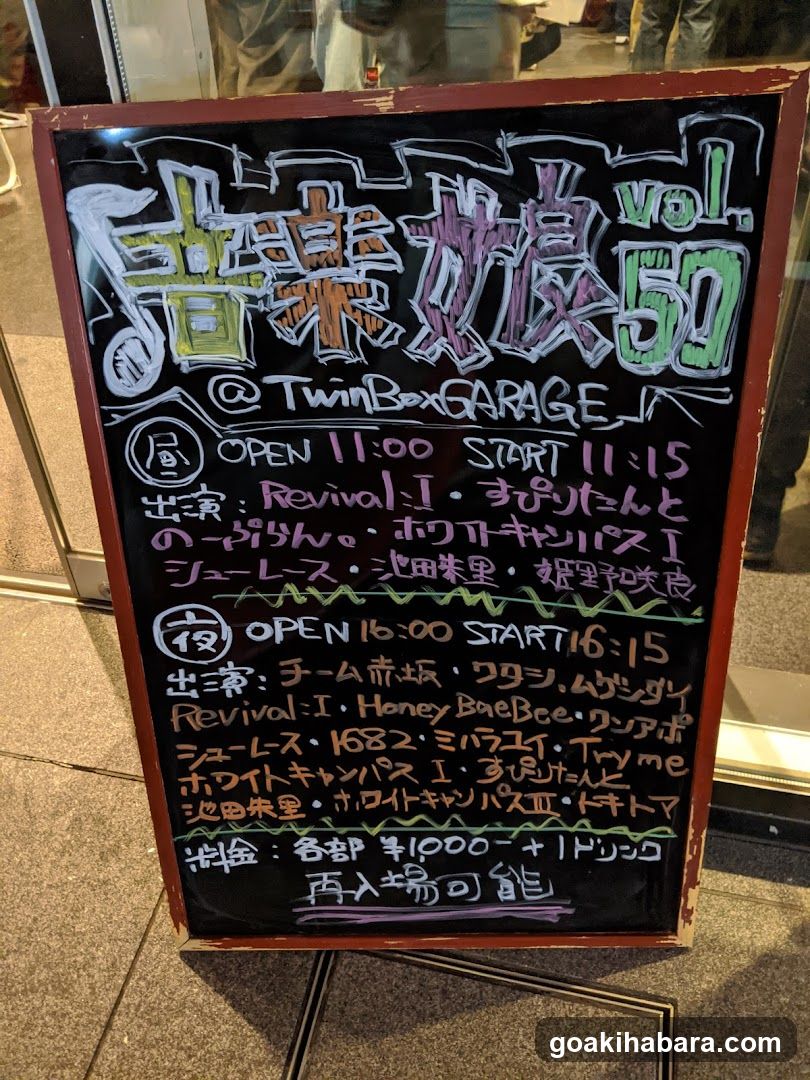 音楽娘 vol.50
@TwinBoxGARAGE
昼 OPEN 11:00 START 11:15
出演:Revival:I・すぴりたんと
のーぷらん。・ホワイトキャンパスI
シューレース・池田朱里・姫野咲良
夜 OPEN 16:00 START 16:15
出演:チーム赤坂・ワタシ・ムゲンダイ
Revival:I・Honey BaeBee・ワンアポ
シューレース・1682・ミハラユイ・Try me
ホワイトキャンパス I・すぴりたんと
池田朱里・ホワイトキャンパスIII・トキトマ
料金:各部 ¥1,000-+1ドリンク
再入場可能
goakihabara.com